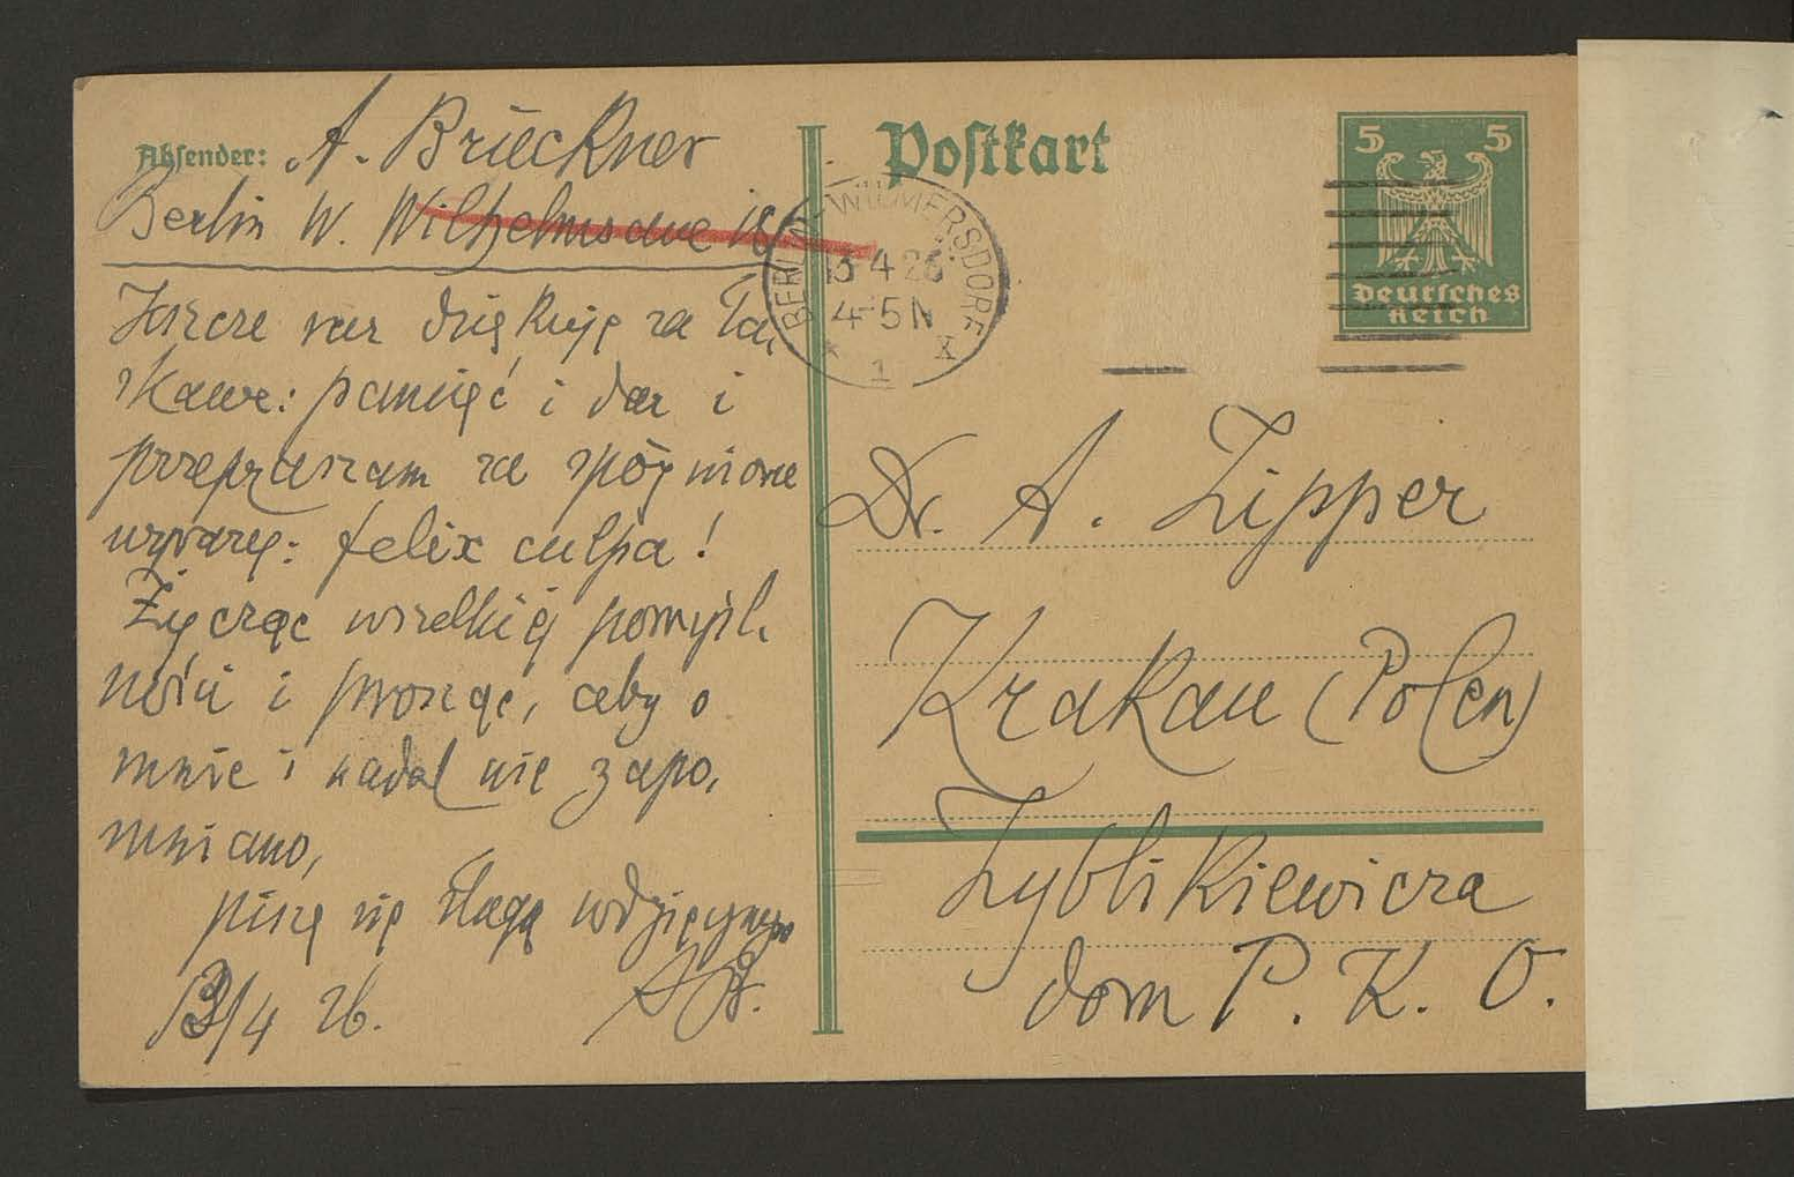 Absender: A. Brückner
Berlin W. Wilhelmsaue
Jeszcze raz dziękuję za ła-
skawe: pamięć i dar i
przepraszam za spóźnione
uwagę: felix culpa!
Życząc wszelkiéj pomyśl-
ności i prosząc, aby o
mnie i nadal nie zapo-
mniano,
piszę się sługą wdzięcznym
AB.
13/4 26.
Postkart
5 5
Deutsches
Reich
BERLIN-WILMERSDORF
13 4 26
4-5 N
* 1 X
Dr. A. Zipper
Krakau (Polen)
Zyblikiewicza
dom P. K. O.